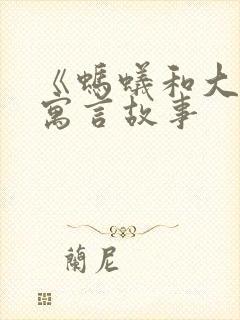 《螞蟻和大
寓言故事
蘭尼